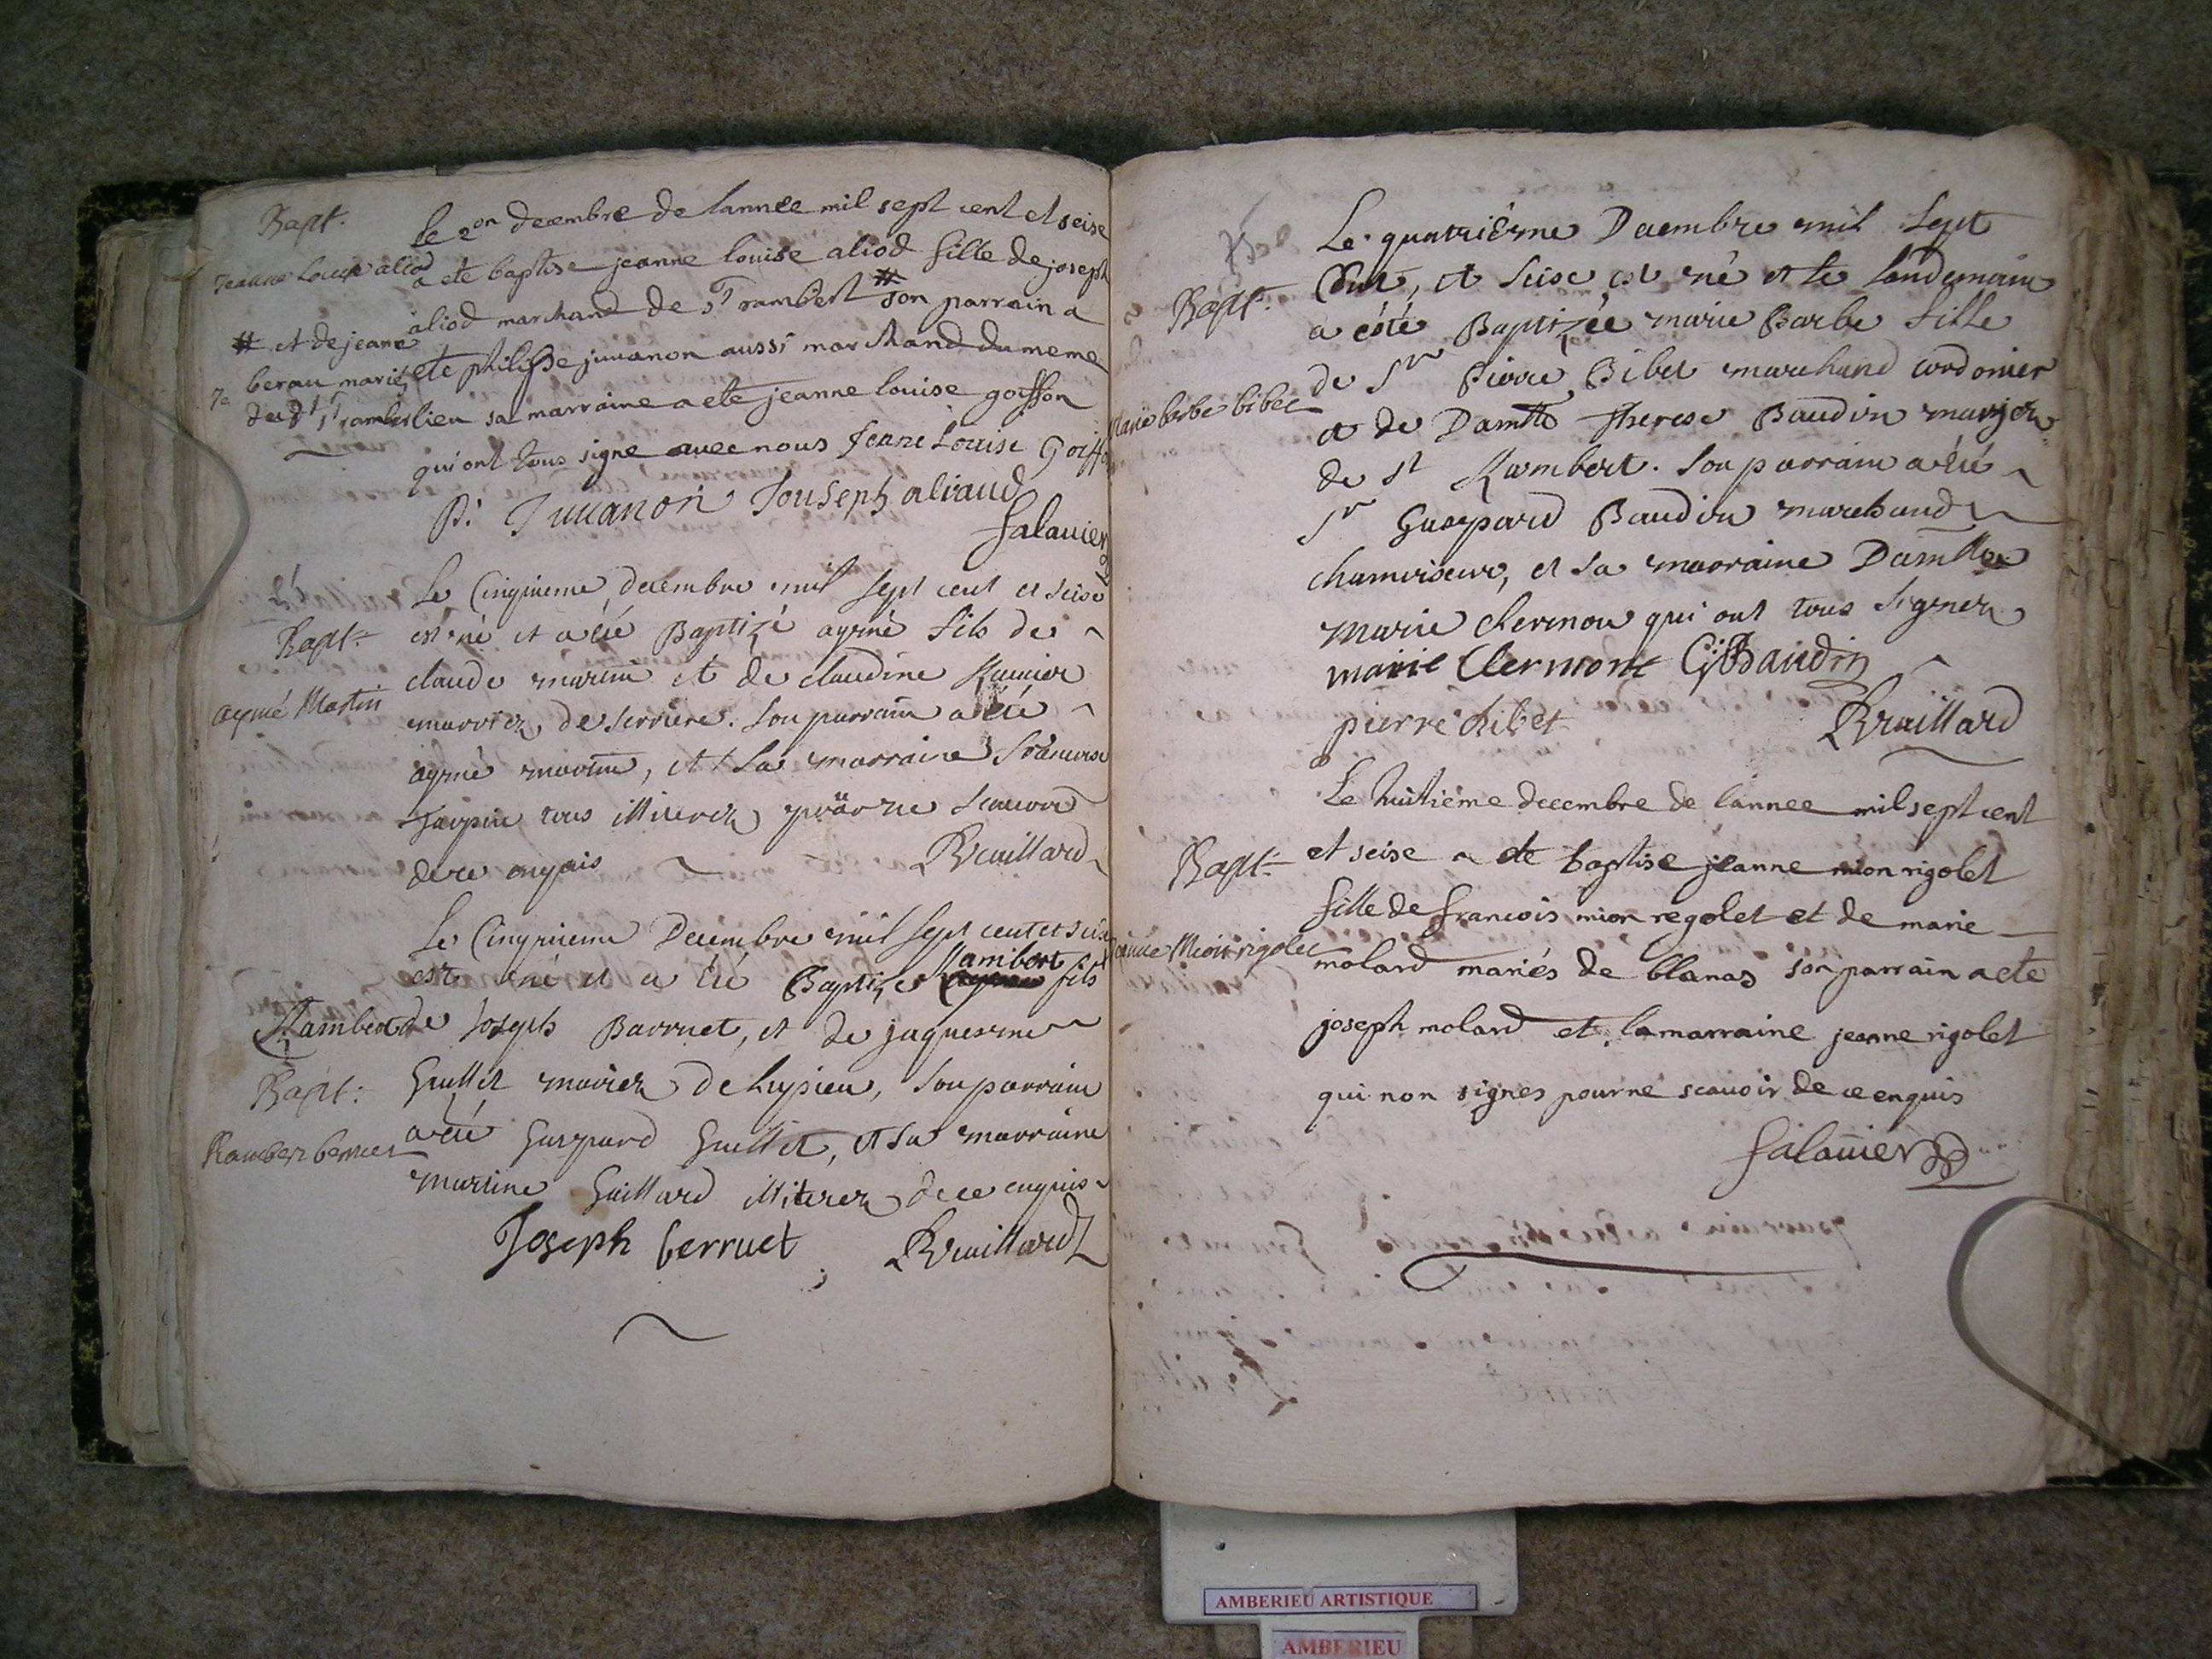 Bapt.
Jeanne Louise aliod
le 2on decembre de lannee mil sept cent et seise
a ete baptise jeanne louise aliod fille de joseph
aliod marchand de st rambert # son parrain a
# et de jeane
berau mariés
du dt st rambert
ete philippe juuanon aussi marchand du meme
lieu sa marraine a ete jeanne louise goiffon
qui ont tous signe avec nous Jeane Louise Goiffon
p. Juuanon Jouseph aliaud
Salauier
Bapt.
aymé Martin
Le Cinquieme decembre mil sept cent et seise
est né et a été Baptizé aymé fils de
claude martin et de claudine
mariez de serriere. Son parrain a été
aymé martin, et sa marraine francoise
tous illiterez pour ne scauoir
de ce enquis
Bruillard
Le Cinquieme Decembre mil sept cent et seise
est né et a été Baptizé Rambert fils
Rambert
Bapt.
de Joseph Barruet, et de jaquesme
Guillet mariez de Lupieu, Son parrain
a été Gaspard Guillet, et sa marraine
martine Guillard illiterez de ce enquis
Joseph berruet Bruillard
Bapt.
Marie berbe bibet
Le quatriême Decembre mil sept
Cent, et seise est né et le landemain
a été Baptizée marie Barbe fille
de Sr Pierre Bibet marchand cordonier
et de Damlle Therese Baudin mariez
de St Rambert. Son parrain a été
Sr Gaspard Baudin marchand
chamoiseur, et sa marraine Damlle
Marie chermon qui ont tous signez
marie Clermont G Baudin
pierre bibet Bruillard
Bapt.
Jeanne Mion rigolet
Le huitiéme decembre de lannee mil sept cent
et seise a ete baptise jeanne mion rigolet
fille de francois mion regolet et de marie
molard mariés de blanas son parrain a ete
joseph molard et la marraine jeanne rigolet
qui non signes pour ne scauoir de ce enquis
Salauier
AMBERIEU ARTISTIQUE
AMBERIEU